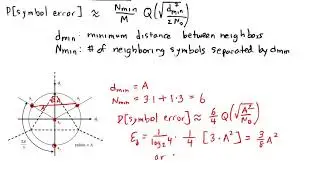 P[symbol error] ≈ Nmin/M Q(√(d²min/2N₀))
dmin: minimum distance between neighbors
Nmin: # of neighboring symbols separated by dmin
dmin = A
Nmin = 3·1 + 1·3 = 6
P[symbol error] ≈ 6/4 Q(√(A²/N₀))
Eb = 1/log₂4 · 1/4 [3·A²] = 3/8 A²
or